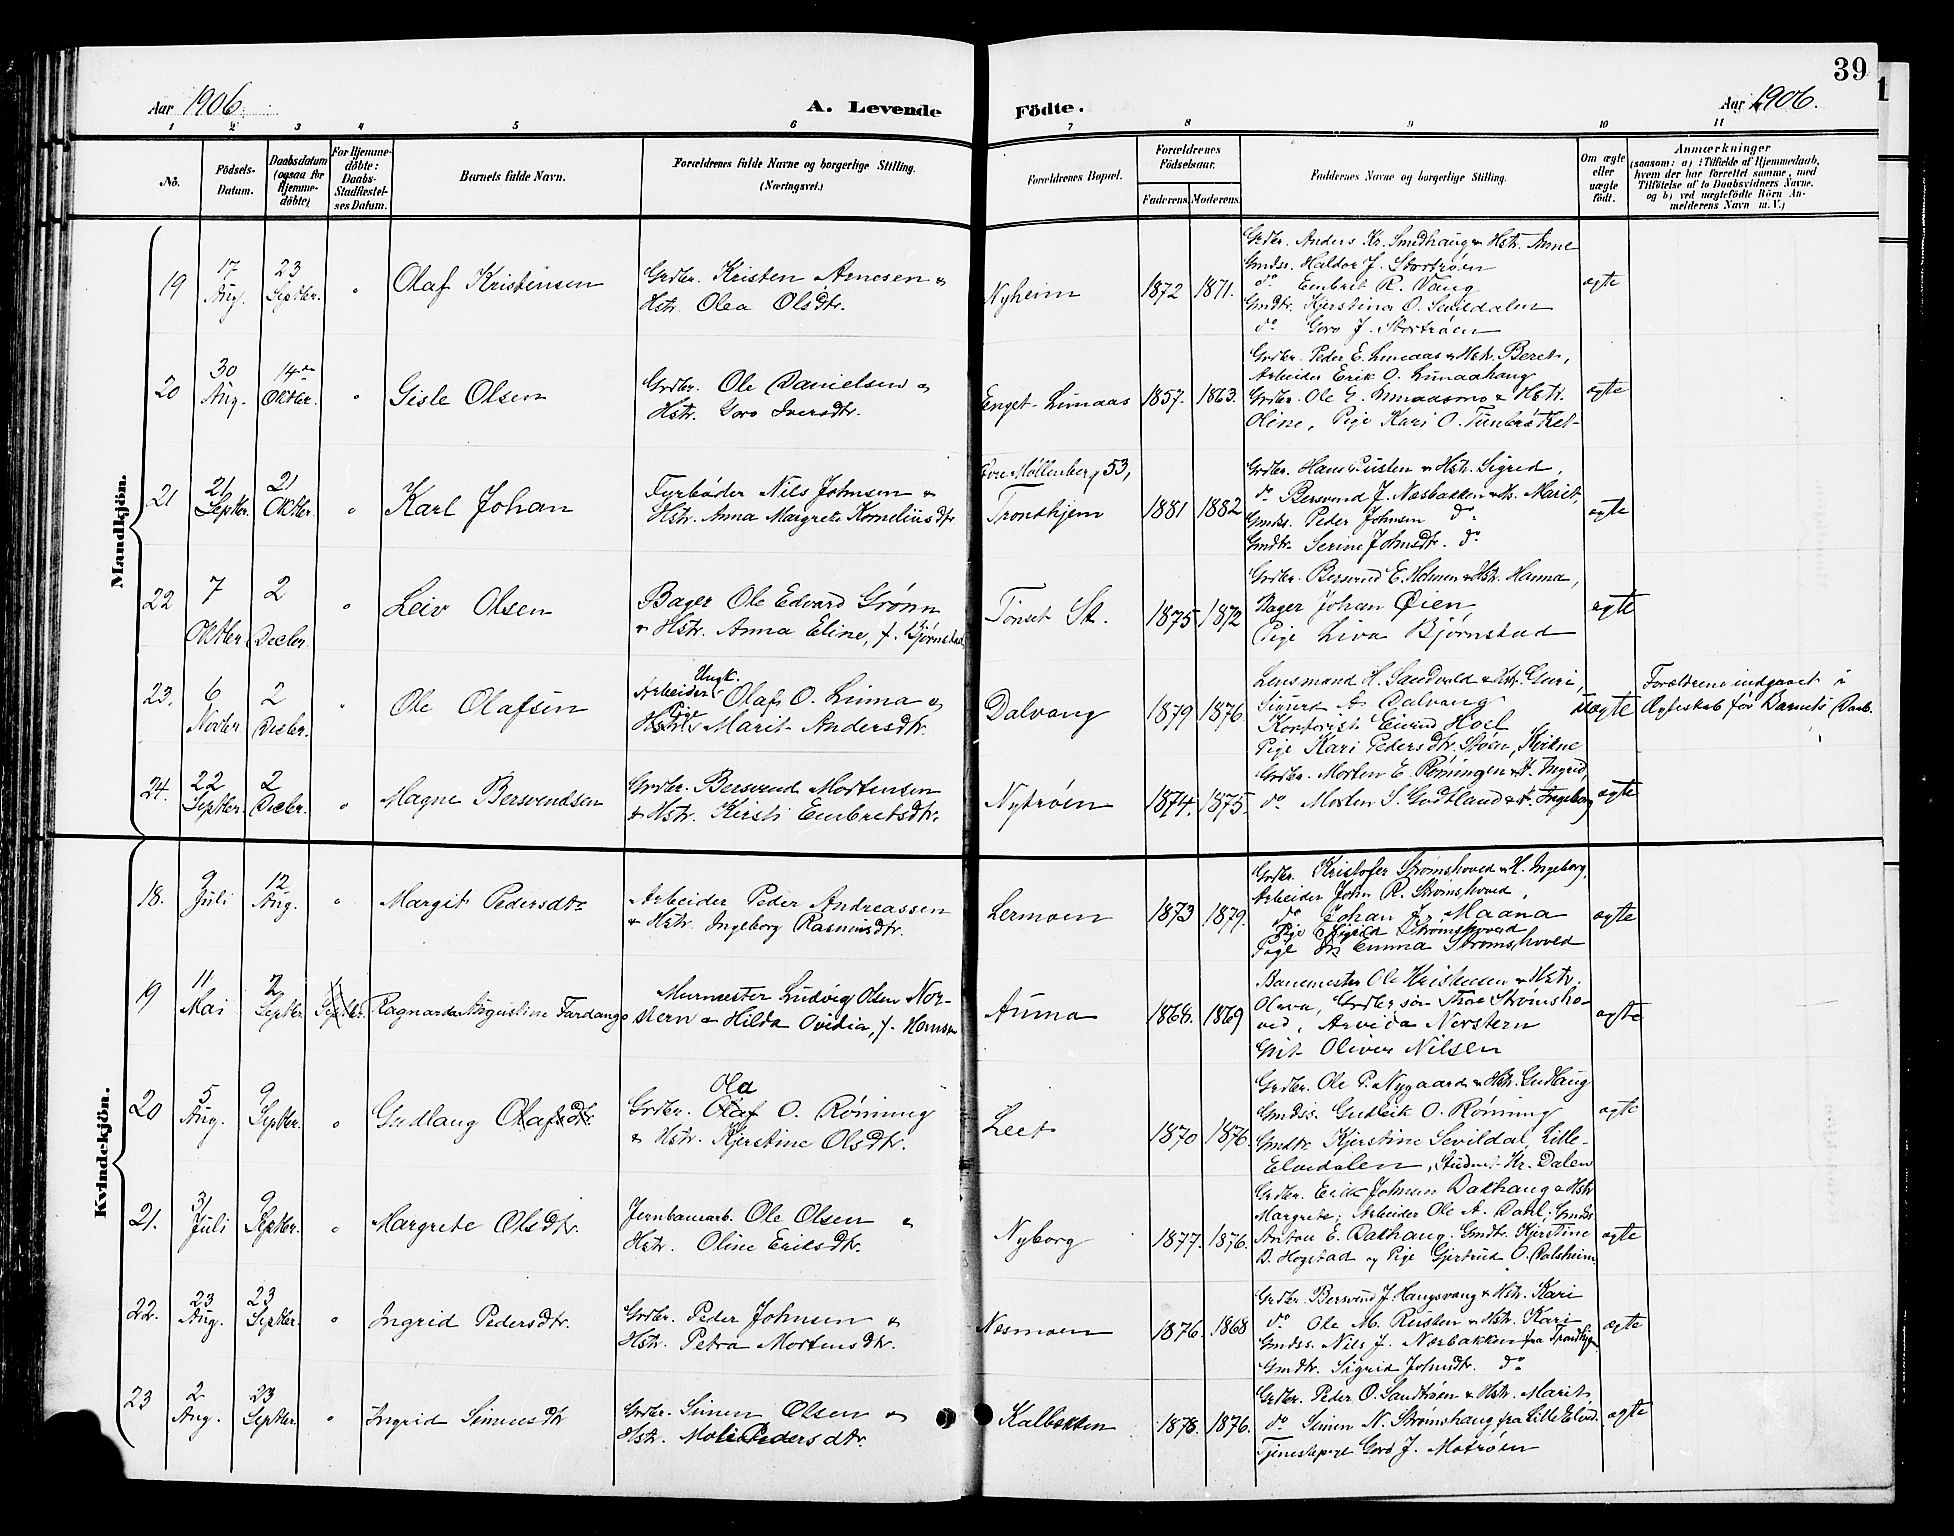 39
Aar 1906. A. Levende Födte. Aar 1906.
1 2 3 4 5 6 7 8 9 10 11
No.
Födsels-
Datum.
Daabsdatum
(ogsaa for
Hjemme-
döbte)
For Hjemme-
döbte:
Daabs-
Stadfæstel-
ses Datum.
Barnets fulde Navn.
Forældrenes fulde Navne og borgerlige Stilling.
(Næringsvei.)
Forældrenes Bopæl.
Forældrenes
Födselsaar.
Faderens Moderens
Faddernes Navne og borgerlige Stilling.
Om ægte
eller
uægte
født.
Anmærkninger
(saasom: a) i Tilfælde af Hjemmedaab,
hvem der har forrettet samme, med
Tilföielse af to Daabsvidners Navne,
og b) ved uægtefödte Börn An-
melderens Navn m. V.)
Mandkjön.
19
17
Aug.
23
Septbr.
"
Olaf Kristensen
Grdbr. Kristen Arnesen &
Hstr. Olea Olsdtr.
Nyheim
1872 1871.
Grdbr. Anders Kr. Smidhaug & Hstr. Anne
Gmdss. Haldor J. Stortrøen
do Embrit R. Vang
Gmdtr. Kjerstina O. Sevildalen
do Goro J. Stortrøen
ægte
20
30
Aug.
14de
Oktbr.
"
Gisle Olsen
Grdbr. Ole Danielsen &
Hstr. Goro Iversdtr.
Enget-Lunaas
1857. 1863.
Grdbr. Peder E. Lunaas & Hstr. Beret,
Arbeider Erik O. Lunaahaug
Grdbr. Ole E. Lunaasmo & Hstr.
Oline, Pige Kari O.
ægte
21
21
Septbr.
21
Oktbr.
"
Karl Johan
Fyrbøder Nils Johnsen &
Hstr. Anna Margrete Korneliusdtr.
Øvre Møllenberg 53,
Trondhjem
1881 1882
Grdbr. Hans Rusten & Hstr. Sigrid,
do Bersvend J. Næsbakken & H. Marit,
Gmdss. Peder Johnsen do
Gmdtr. Serine Johnsdtr. do
ægte
22
7
Oktbr.
2
Decbr.
"
Leiv Olsen
Bager Ole Edvard Grønn
& Hstr. Anna Eline, f. Bjørnstad
Tønset St.
1875 1872
Grdbr. Bersvend E. Holmen & Hstr. Hanna,
Bager Johan Øien
Pige Liva Bjørnstad
ægte
23.
6
Novbr.
2
Decbr.
"
Ole Olafsen
Ungk.
Arbeider Olaf O. Lunna &
Pige
Hstr. Marit Andersdtr.
Dalvang
1879 1876.
Lensmand H. Sandvold & Hstr. Guri,
Sivert A. Dalvang
Kontorist Eivind Hoel
Pige Kari Pedersdtr. Støen, Kvikne
uægte
Forældrene indgaaet i
Ægteskab før Barnets Daab.
24.
22
Septbr.
2
Decbr.
"
Magne Bersvendsen
Grdbr. Bersvend Mortensen
& Hstr. Kirsti Embretsdtr.
Nytrøen
1874. 1875.
Grdbr. Morten E. Rønningen & H. Ingrid,
do Morten S. Godtland & H. Ingeborg
ægte
Kvindekjön.
18.
9
Juli
12
Aug.
"
Margit Pedersdtr
Arbeider Peder Andreassen
& Hstr. Ingeborg Rasmusdtr.
Lermoen
1873 1879.
Grdbr. Kristofer Strømshoved & H. Ingeborg,
Arbeider John R. Strømshoved,
do Johan Maana
Pige Sigrid Strømshoved
Pige Emma Strømshoved
ægte
19
11
Mai
2
Septbr.
Septbr.
Ragnarda Augustine Fardang
Murmester Ludvig Olsen Nor-
stern & Hilda Ovidia, f. Hansen
Auma
1868. 1869
Banemester Ole Kristensen & Hstr.
Olava, Grdbrsøn Thore Strømsho-
ved, Arvida Norstern
Gift Oliver Nilsen
ægte
20
5
Aug.
9
Septbr.
"
Gudlaug Olafsdtr.
Ola
Grdbr. Olaf O. Rønning
& Hstr. Kjerstine Olsdtr.
Leet
1870 1876.
Grdbr. Ole P. Nygaard & Hstr. Gudlaug
Gmdss. Gudleik O. Rønning
Gmdtr. Kjerstine Sevildal, Lille-
Elvedalen, Student Kr. Dalen
ægte
21.
31
Juli
9
Septbr.
"
Margrete Olsdtr.
Jernbanearb. Ole Olsen &
Hstr. Oline Eriksdtr.
Nyborg
1877. 1876.
Grdbr. Erik Johnsen Bakhaug & Hstr
Margrete; Arbeider Ole A. Dahl, Gmdss.
Anton E. Bakhaug. Gmdtr. Kjerstine
B. Hogstad og Pige Gjertrud O. Dalsheim
ægte
22.
23
Aug.
23
Septbr.
"
Ingrid Pedersdtr.
Grdbr. Peder Johnsen &
Hstr. Petra Mortensdtr.
Næsmoen
1876. 1868
Grdbr. Bersvend J. Haugsvang & Hstr. Kari
do Ole M. Rusten & Hstr. Kari
Gmdss. Nils J. Næsbakken fra Trondhjem
Gmdtr. Sigrid Johnsdtr. do
ægte
23
2
Aug.
23
Septbr.
"
Ingrid Simensdtr
Grdbr. Simen Olsen &
Hstr. Pedersdtr.
Kalbækken
1878. 1876.
Grdbr. Peder O. Sandtrøen & Hstr. Marit,
do Simen N. Strømshaug fra Lille Elvd.
Tjenestepige Goro J. Motrøen
ægte